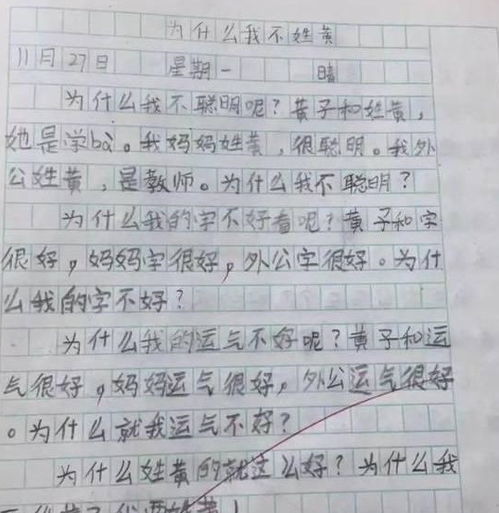 为什么我不姓黄
11月27日 星期一 晴
为什么我不聪明呢？黄子和姓黄，
她是学bà。我妈妈姓黄，很聪明。我外
公姓黄，是教师。为什么我不聪明？
为什么我的字不好看呢？黄子和字
很好，妈妈字很好，外公字很好。为什
么我的字不好？
为什么我的运气不好呢？黄子和运
气很好，妈妈运气很好，外公运气很好
。为什么就我运气不好？
为什么姓黄的就这么好？为什么我